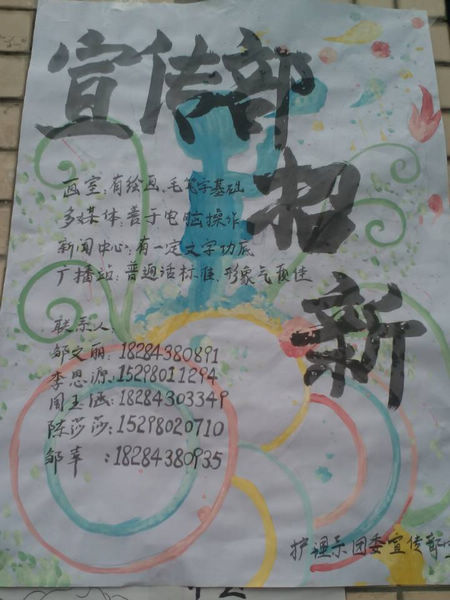 宣传部
招新
画室:有绘画、毛笔字基础
多媒体:善于电脑操作
新闻中心:有一定文字功底
广播站:普通话标准、形象气质佳
联系人:
邹文丽:18284380891
李思源:15298011294
周玉涵:18284303349
陈莎莎:15298020710
邹苹:18284380935
护理系团委宣传部